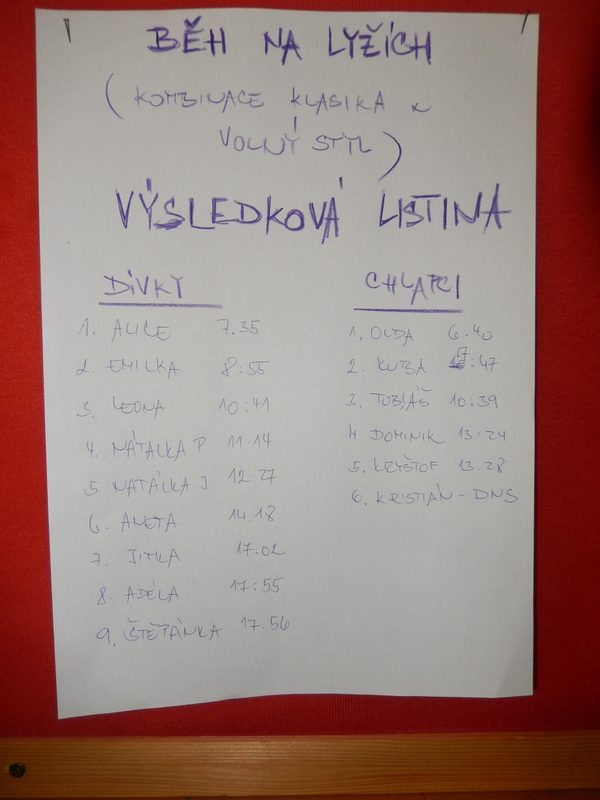 BĚH NA LYŽÍCH
(KOMBINACE KLASIKA
VOLNÝ STYL)
VÝSLEDKOVÁ LISTINA
DÍVKY
1. ALICE 7.35
2. EMILKA 8:55
3. LEONA 10:41
4. NATÁLKA P. 11:14
5. NATÁLKA J 12:27
6. ANETA 14.18
7. JITKA 17:02
8. ADÉLA 17:55
9. ŠTĚTÁNKA 17.56
CHLAPCI
1. OLDA 6:40
2. KUBA :47
3. TOBIÁŠ 10:39
4 DOMINIK 13:24
5. KRYŠTOF 13:28
6. KRISTIÁN - DNS